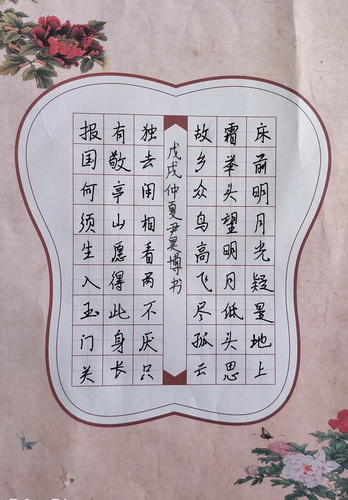 床前明月光疑是地上
霜举头望明月低头思
故乡众鸟高飞尽孤云
戊戌仲夏尹昊博书
独去闲相看两不厌只
有敬亭山愿得此身长
报国何须生入玉门关